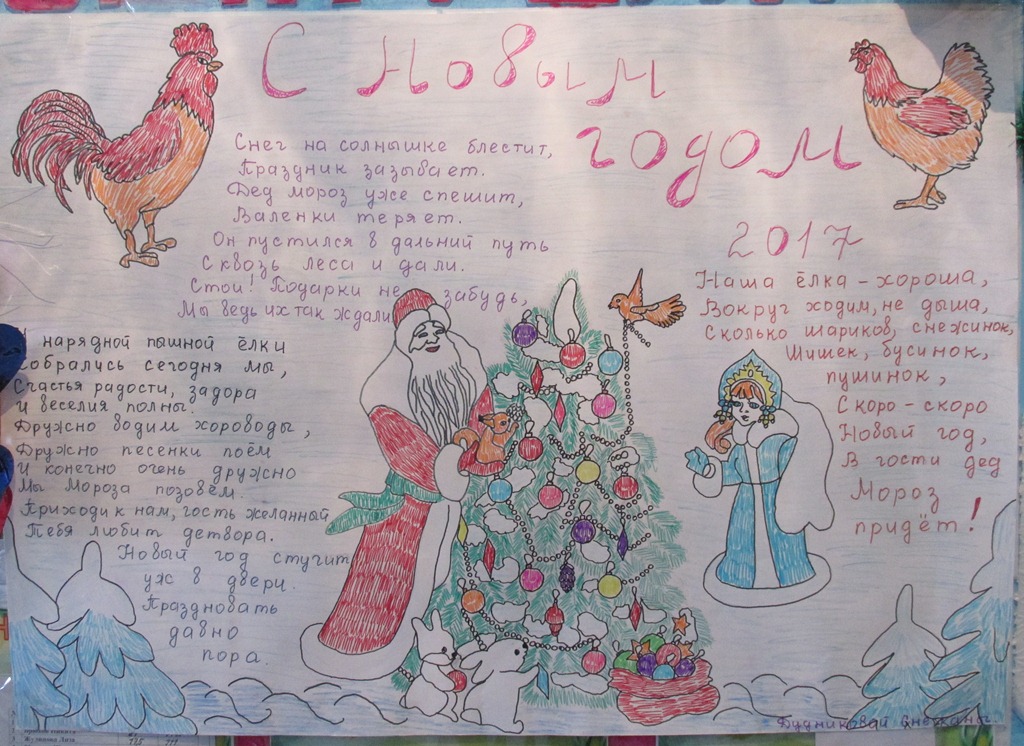 С Новым
годом
2017
Снег на солнышке блестит,
Праздник зазывает.
Дед мороз уже спешит,
Валенки теряет.
Он пустился в дальний путь
Сквозь леса и дали.
Стой! Подарки не забудь,
Мы ведь их так ждали
нарядной пышной ёлки
Собрались сегодня мы,
Счастья радости, задора
И веселия полны.
Дружно водим хороводы,
Дружно песенки поём
И конечно очень дружно
Мы Мороза позовём.
Приходи к нам, гость желанный
Тебя любит детвора.
Новый год стучит
уж в двери.
Праздновать
давно
пора.
Наша ёлка - хороша,
Вокруг ходим, не дыша,
Сколько шариков, снежинок,
Шишек, бусинок,
пушинок,
Скоро - скоро
Новый год,
В гости дед
Мороз
придёт!
Будниковой Снежаны